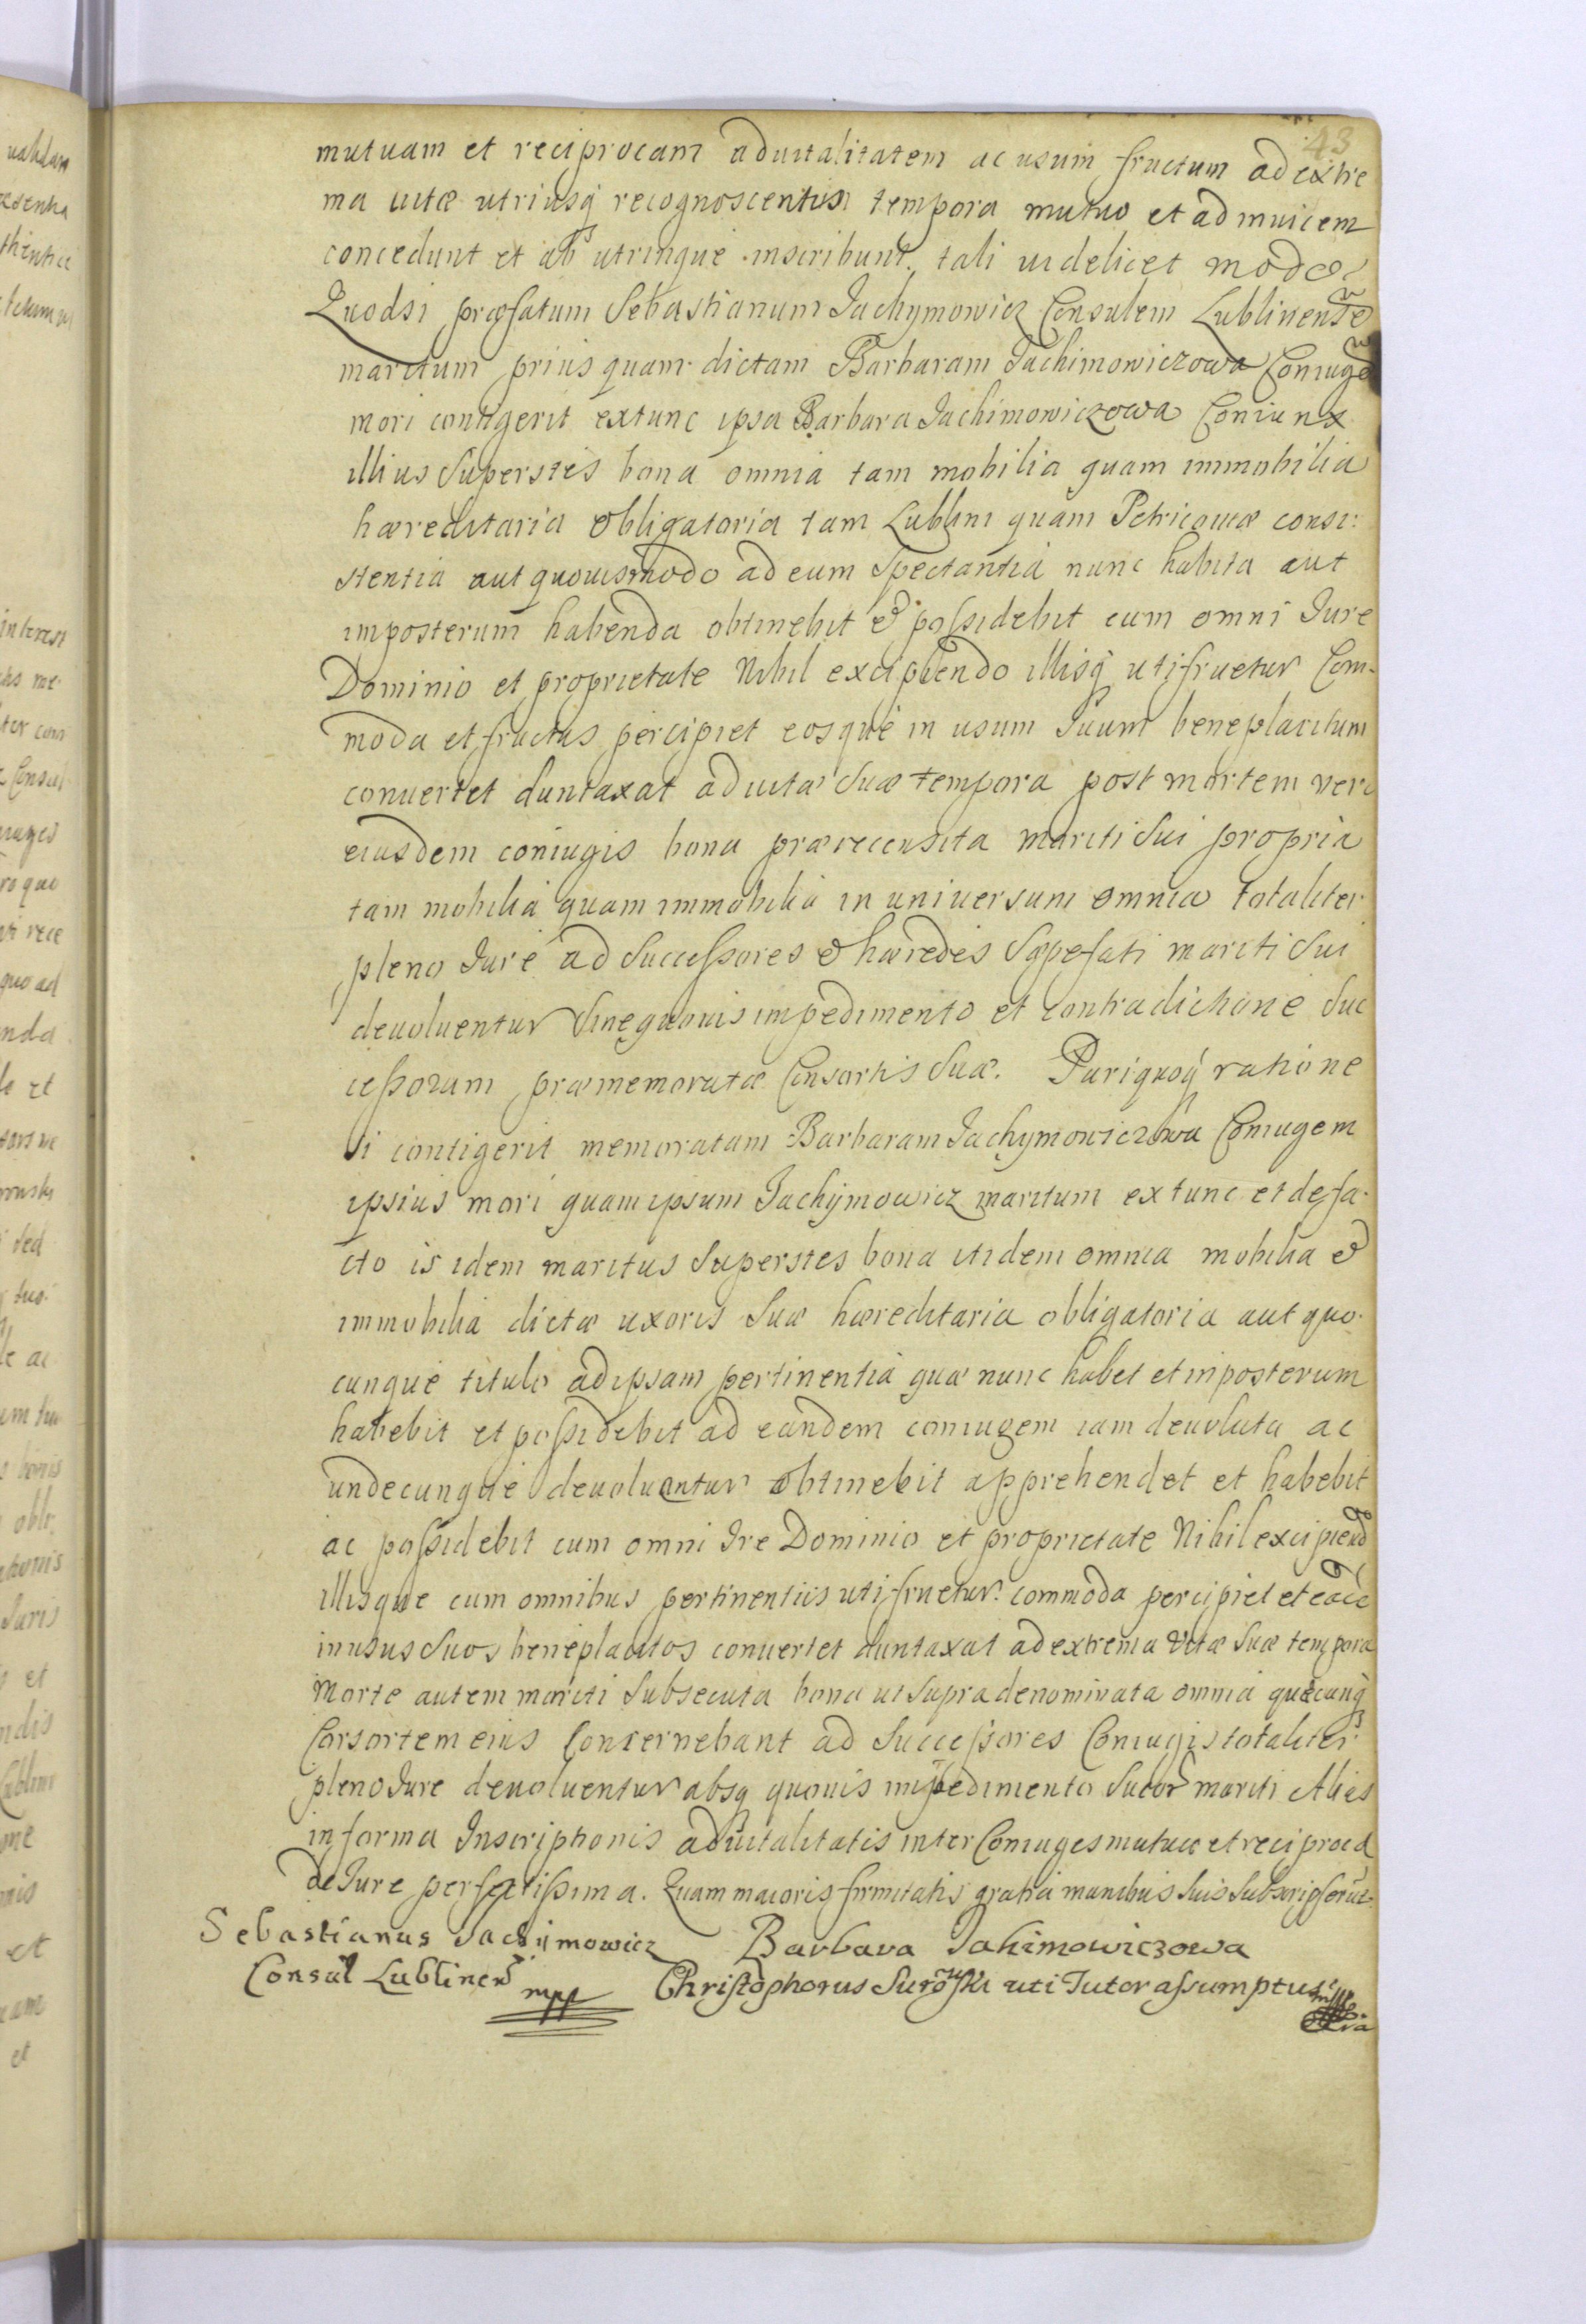 43
mutuam et reciprocam aduitalitatem ac usum fructum ad extre
ma uitæ utriusq recognoscentium tempora mutuo et ad inuicem
concedunt et ab utrinque inscribunt, tali uidelicet modo
Quodsi præfatum Sebastianum Jachymowicz Consulem Lublinense
maritum prius quam dictam Barbaram Jachimowiczowa Coniuge
mori contigerit extunc ipsa Barbara Jachimowiczowa Coniunx
illius Superstes bona omnia tam mobilia quam immobilia
hæreditaria obligatoria tam Lublini quam Petricouiæ consi:
stentia aut quouismodo ad eum Spectantia nunc habita aut
imposterum habenda obtinebit & possidebit cum omni Jure
Dominio et proprietate Nihil excipiendo illisq utifruetur Com-
moda et fructus percipiet eosque in usum Suum beneplacitum
conuertet duntaxat ad uitæ Suæ tempora post mortem vero
eiusdem coniugis bona prærecensita mariti Sui propria
tam mobilia quam immobilia in uniuersum omnia totaliter
pleno Jure ad Successores & hæredes Sæpefati mariti Sui
deuoluentur Sine quouis impedimento et contradictione Suc
cessorum præmemoratæ Consortis Suæ. Pariquoq ratione
Si contigerit memoratam Barbaram Jachymowiczowa Coniugem
ipsius mori quam ipsum Jachymowicz maritum extunc et de fa-
cto is idem maritus Superstes bona itidem omnia mobilia &
immobilia dictæ uxoris Suæ hæreditaria obligatoria aut quo-
cunque titulo ad ipsam pertinentia quæ nunc habet et inposterum
habebit et possidebit ad eandem coniugem iam deuoluta ac
undecunque deuoluantur obtinebit apprehendet et habebit
ac possidebit cum omni Jre Dominio et proprietate Nihil excipiend
illisque cum omnibus pertinentiis utifruetur commoda percipiet et
in usus Suos beneplacitos conuertet duntaxat ad extrema Vitæ Suæ tempora
Morte autem mariti Subsecuta bona ut Supra denominata omnia quæcunq
Corsortem eius Concernebant ad Successores Coniugis totaliter
pleno Jure deuoluentur absq quouis impedimento Sucor mariti Alias
in forma Inscriptionis aduitalitatis inter Coniuges mutuæ et reciproca
de Jure perfectissima. Quam maioris firmitatis gratia manibus Suis Subscripserut.
Sebastianus Jachijmowicz Barbara Jahimowiczowa
Consul Lublinens mpp Christophorus Surowski uti Tutor assumptus